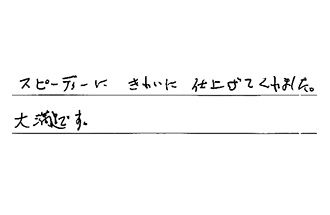 スピーディーに きれいに 仕上げてくれました。
大満足です。